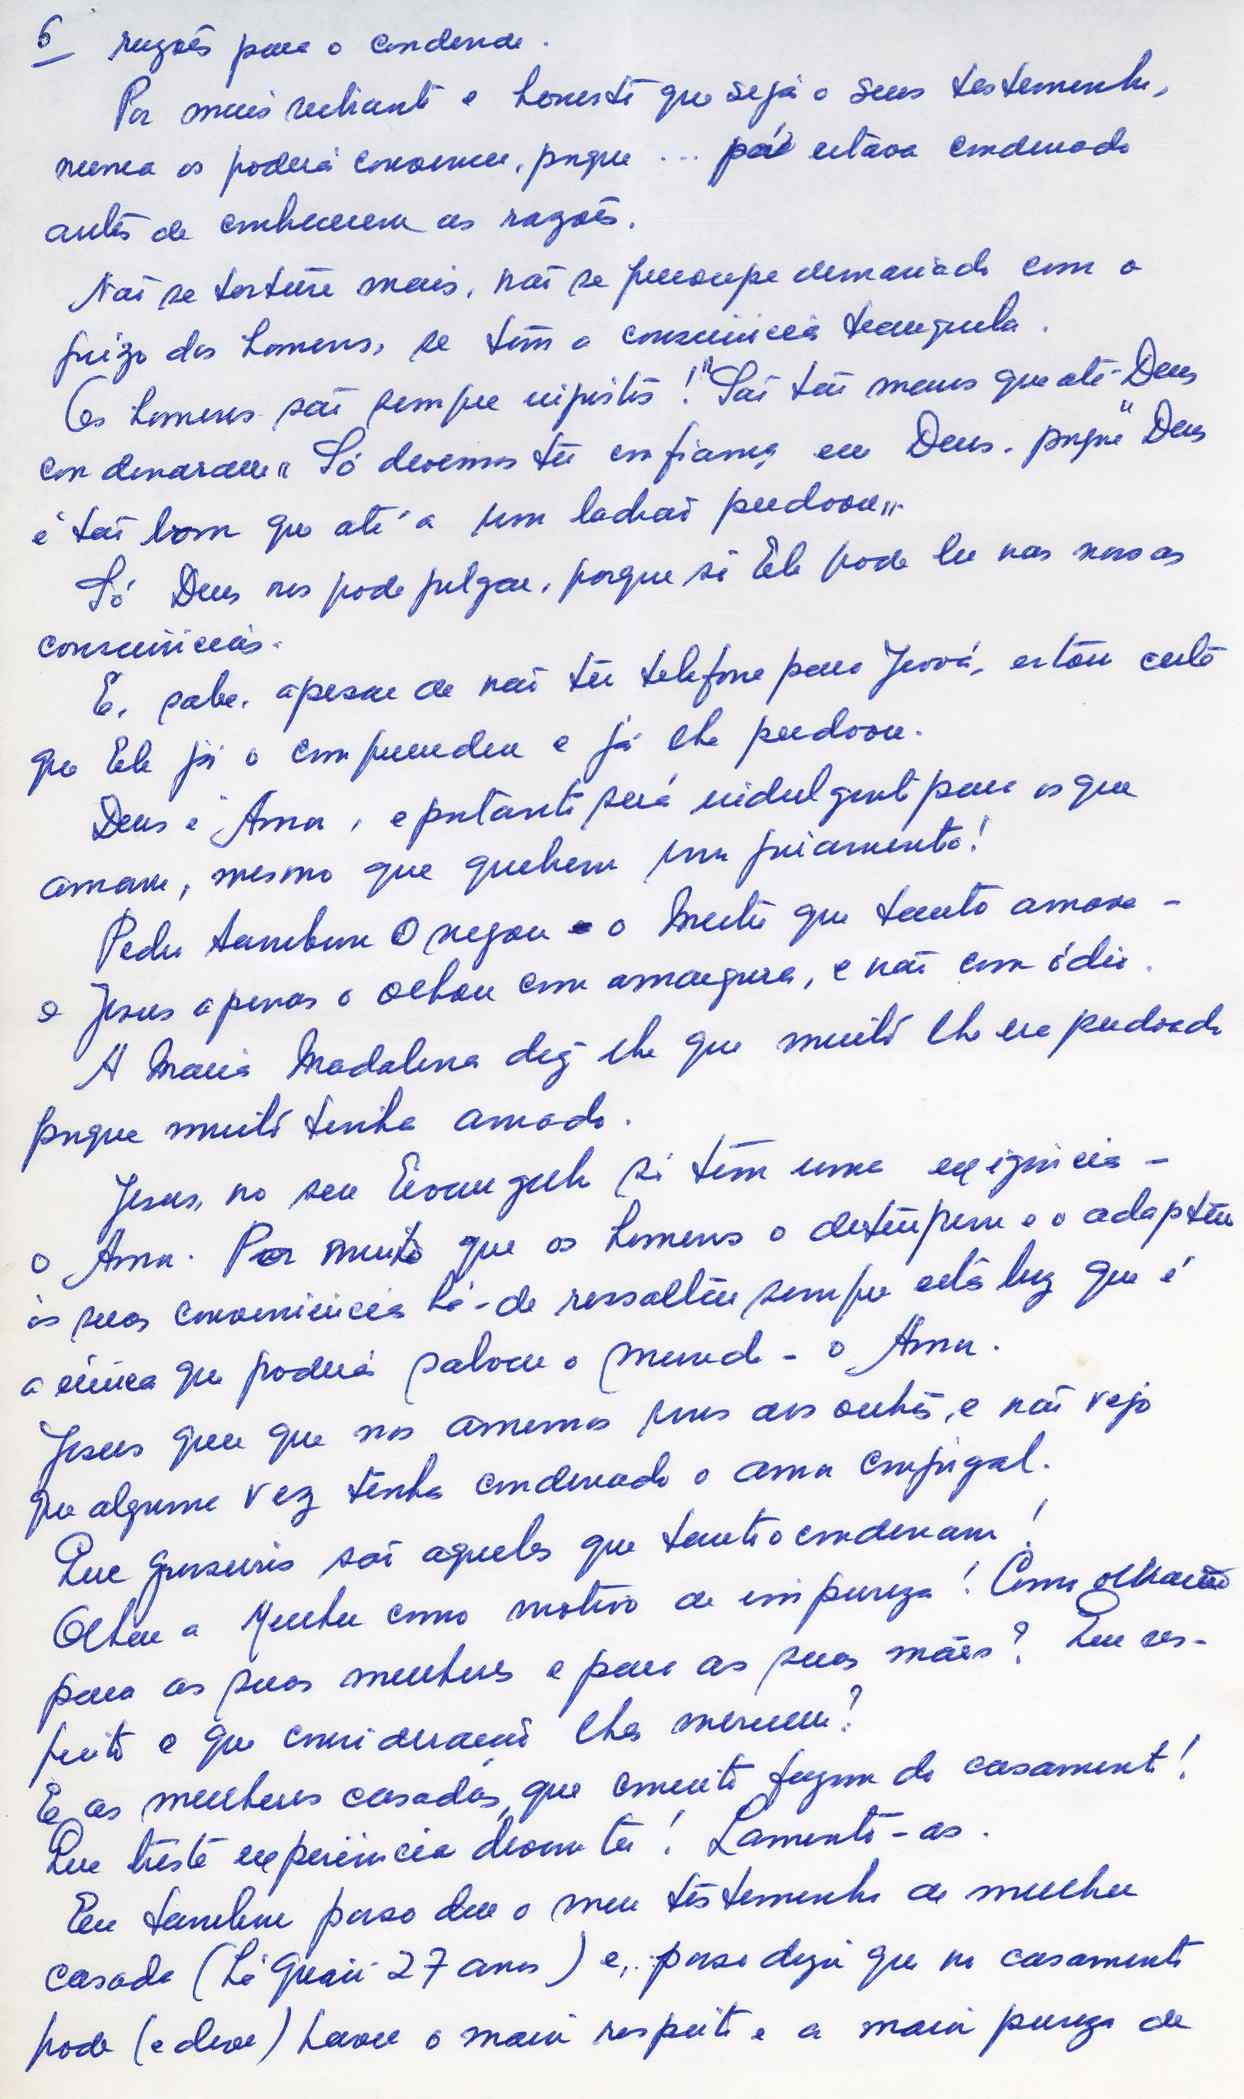 6 razões para o condenar.
Por mais vibrante e honesto que seja o seu testemunho,
nunca os poderá convencer, porque ... já estava condenado
antes de conhecerem as razões.
Não se torture mais, não se preocupe demasiado com o
juízo dos homens, se tem a consciência tranquila.
Os homens são sempre injustos! "São tão maus que até Deus
condenaram" Só devemos ter confiança em Deus, porque "Deus
é tão bom que até a um ladrão perdoou".
Só Deus nos pode julgar, porque só Ele pode ler nas nossas
consciências.
E, sabe, apesar de não ter telefone para Jeová, estou certa
que Ele já o compreendeu e já lhe perdoou.
Deus é Amor, e portanto será indulgente para os que
amam, mesmo que quebrem um juramento!
Pedro também O negou - o Mestre que tanto amava -
e Jesus apenas o olhou com amargura, e não com ódio.
A Maria Madalena diz-lhe que muito lhe era perdoado
porque muito tinha amado.
Jesus, no seu Evangelho só tem uma exigência -
o Amor. Por muito que os homens o deturpem e o adaptem
às suas conveniências há-de ressaltar sempre esta luz que é
a única que poderá salvar o mundo - o Amor.
Jesus quer que nos amemos uns aos outros, e não vejo
que alguma vez tenha condenado o amor conjugal.
Que grosseiros são aqueles que tanto o condenam!
Olhar a Mulher como motivo de impureza! Como olharão
para as suas mulheres e para as suas mães? Que res-
peito e que consideração lhes merecem?
E as mulheres casadas, que conceito fazem do casamento!
Que triste experiência devem ter! Lamento-as.
Eu também posso dar o meu testemunho de mulher
casada (há quasi 27 anos) e, posso dizer que no casamento
pode (e deve) haver o maior respeito e a maior pureza de